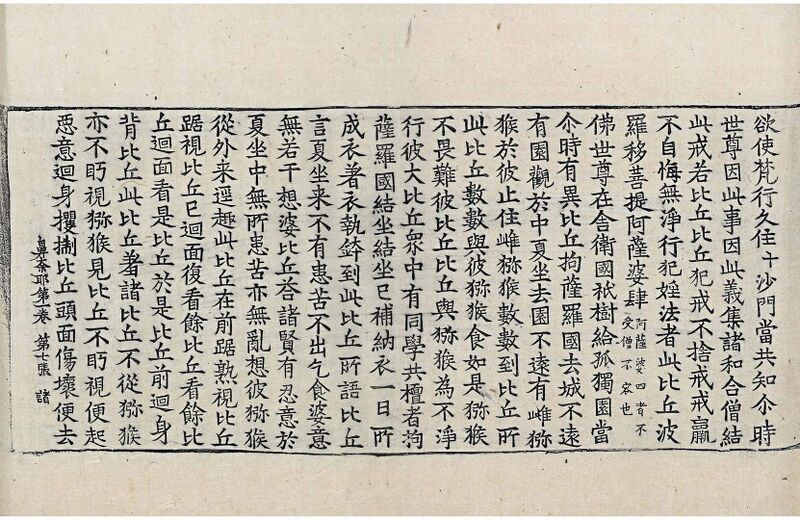 欲使梵行久住十沙門當共知尒時
世尊因此事因此義集諸和合僧結
此戒若比丘比丘犯戒不捨戒戒羸
不自悔無淨行犯婬法者此比丘波
羅移菩提阿薩婆肆阿薩婆四者不受僧不容也
佛世尊在舍衛國祇樹給孤獨園當
尒時有異比丘拘薩羅國去城不遠
有園觀於中夏坐去園不遠有雌猕
猴於彼止住雌猕猴數數到比丘所
此比丘數數與彼猕猴食如是猕猴
不畏難彼比丘比丘與猕猴為不淨
行彼大比丘衆中有同學共檀者拘
薩羅國結坐結坐已補納衣一日所
成衣著衣執鉢到此比丘所語比丘
言夏坐来不有患苦不出乞食婆意
無若干想婆比丘荅諸賢有忍意於
夏坐中無所患苦亦無亂想彼猕猴
從外来逕趣此比丘在前踞熟視比丘
踞視比丘已迴面復看餘比丘看餘比
丘迴面看是比丘於是比丘前迴身
背比丘此比丘著諸比丘不從猕猴
亦不眄視猕猴見比丘不眄視便起
惡意迴身攫捌比丘頭面傷壞便去
鼻奈耶第一卷 第七張 諸